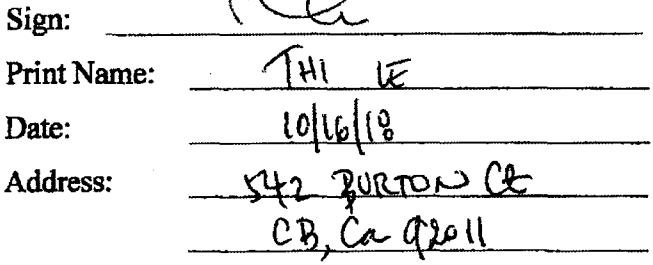 Sign:
Print Name: THI LE
Date: 10/16/18
Address: 542 BURTON Ct
CB, Ca 92011